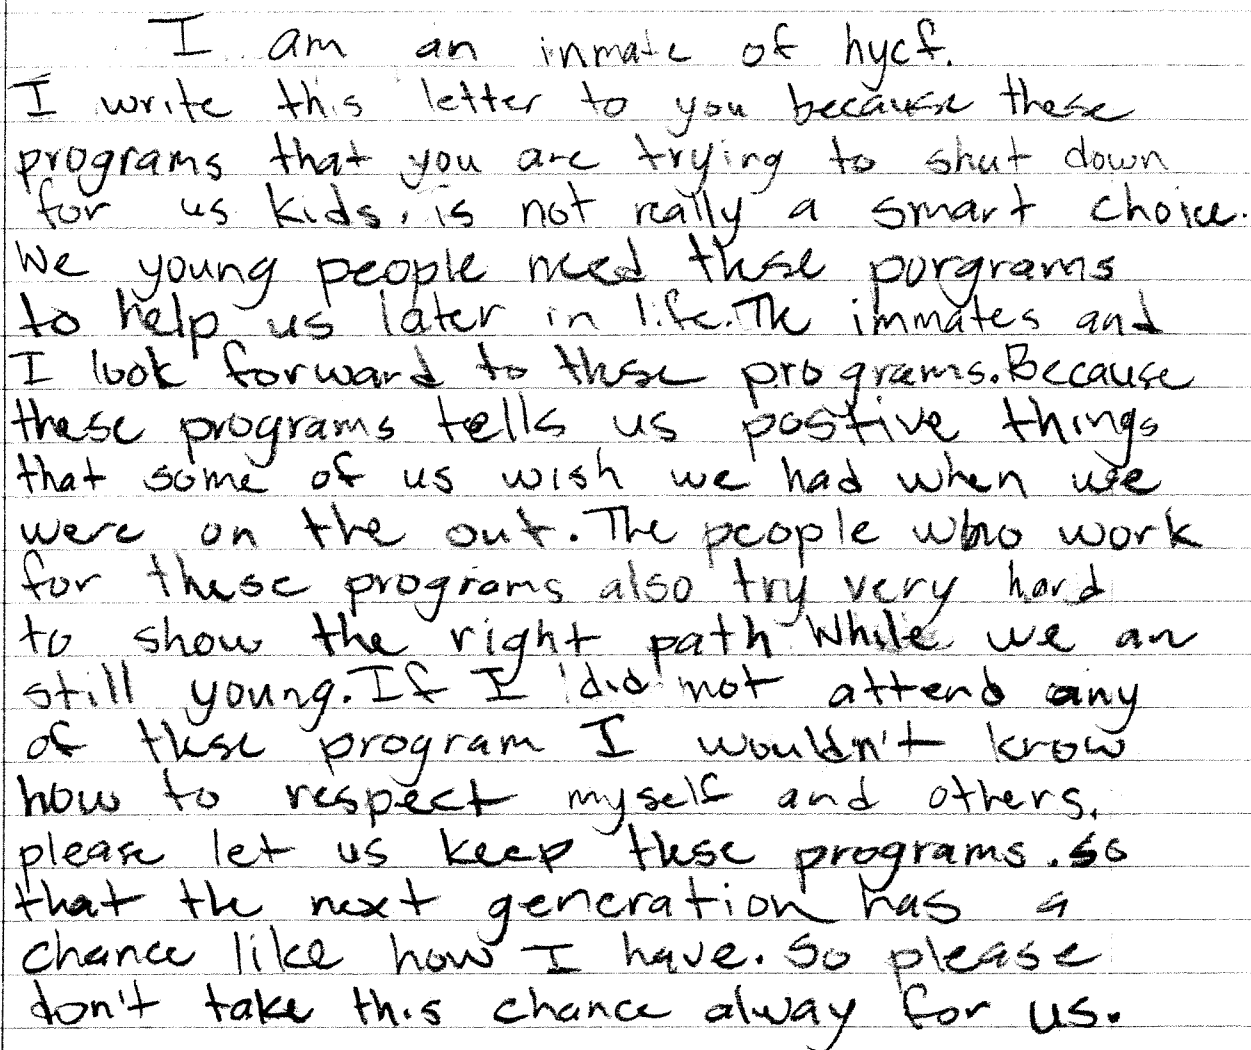 I am an inmate of hycf.
I write this letter to you because these
programs that you are trying to shut down
for us kids, is not really a smart choice.
We young people need these porgrams
to help us later in life. The immates and
I look forward to these programs. Because
these programs tells us postive things
that some of us wish we had when we
were on the out. The people who work
for these programs also try very hard
to show the right path While we are
still young. If I did not attend any
of these program I wouldn't know
how to respect myself and others.
please let us keep these programs. so
that the next generation has a
chance like how I have. So please
don't take this chance alway for us.